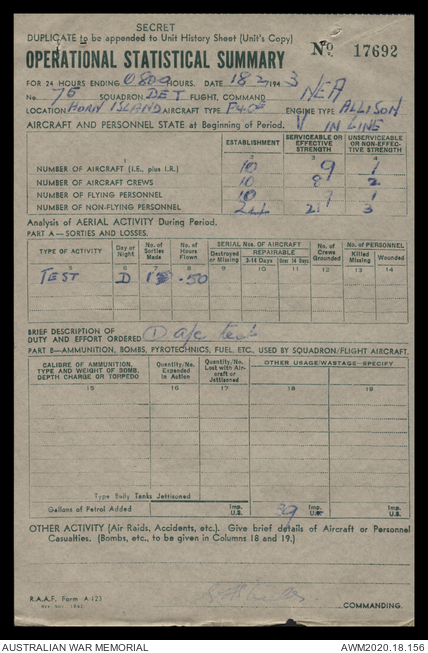 SECRET
DUPLICATE to be appended to Unit History Sheet (Unit's Copy)
OPERATIONAL STATISTICAL SUMMARY No. 17692
FOR 24 HOURS ENDING 0800 HOURS. DATE 18 2 1943
No. 75 SQUADRON DET FLIGHT, COMMAND NEA
LOCATION HORN ISLAND AIRCRAFT TYPE P40E ENGINE TYPE ALLISON
AIRCRAFT AND PERSONNEL STATE at Beginning of Period. V IN LINE
1 ESTABLISHMENT SERVICEABLE OR EFFECTIVE STRENGTH UNSERVICEABLE OR NON-EFFECTIVE STRENGTH
2 3 4
NUMBER OF AIRCRAFT (I.E., plus I.R.) 10 9 1
NUMBER OF AIRCRAFT CREWS 10 8 2
NUMBER OF FLYING PERSONNEL 10 1
NUMBER OF NON-FLYING PERSONNEL 3
Analysis of AERIAL ACTIVITY During Period.
PART A—SORTIES AND LOSSES.
TYPE OF ACTIVITY Day or Night No. of Sorties Made No. of Hours Flown SERIAL Nos. OF AIRCRAFT Destroyed or Missing REPAIRABLE 3-14 Days Over 14 Days No. of Crews Grounded No. of PERSONNEL Killed Missing Wounded
5 6 7 8 9 10 11 12 13 14
TEST D .50
BRIEF DESCRIPTION OF
DUTY AND EFFORT ORDERED (1) a/c Test
PART B—AMMUNITION, BOMBS, PYROTECHNICS, FUEL, ETC., USED BY SQUADRON/FLIGHT AIRCRAFT.
CALIBRE OF AMMUNITION, TYPE AND WEIGHT OF BOMB, DEPTH CHARGE OR TORPEDO Quantity/No. Expended in Action Quantity/No. Lost with Aircraft or Jettisoned OTHER USAGE/WASTAGE—SPECIFY
15 16 17 18 19
Type Belly Tanks Jettisoned
Gallons of Petrol Added Imp. U.S. 39 Imp. U.S. Imp. U.S.
OTHER ACTIVITY (Air Raids, Accidents, etc.). Give brief details of Aircraft or Personnel
Casualties. (Bombs, etc., to be given in Columns 18 and 19.)
R.A.A.F. Form A.123
COMMANDING.
AUSTRALIAN WAR MEMORIAL AWM2020.18.156